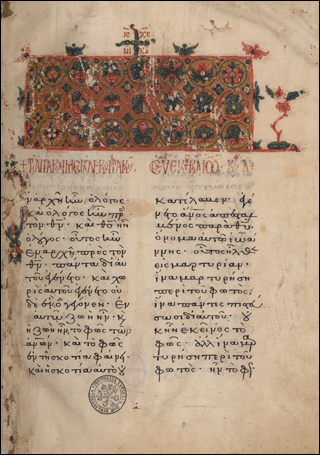 ΙC ΧC
ΝΙ ΚΑ
ν ἀρχῆ ἦν ὁ λόγος·
καὶ ὁ λόγος ἦν πρὸ
τὸν θν· καὶ θς ἦν ὁ
λόγος· οὗτος ἦν
ἐν ἀρχῆ πρὸς τὸν
θν· πάντα δι αὐ
τοῦ ἐγένετο· καὶ χω
ρὶς αὐτοῦ ἐγένετο οὐ
δὲ ἓν ὃ γέγονεν. Ἐν
αὐτῶ ζωὴ ἦν· κ
ἡ ζωὴ ἦν τὸ φῶς τῶν
ἀνων· καὶ τὸ φῶς
ἐν τῆ σκοτία φαίνει·
καὶ ἡ σκοτία αὐτὸ οὐ
κατέλαβεν. ἐγέ
νετο ἄνος ἀπεσταλ
μένος παρὰ θυ·
ὄνομα αὐτῶ Ἰω
άννης· οὗτος ἦλθεν
εἰς μαρτυρίαν·
ἵνα μαρτυρήση
περὶ τοῦ φωτός·
ἵνα πάντες πιστεύ
σωσι δι αὐτοῦ· οὐ
κ ἦν ἐκεῖνος τὸ
φῶς· ἀλλ ἵνα μαρ
τυρήση περὶ τοῦ
φωτός· ἦν τὸ φῶ